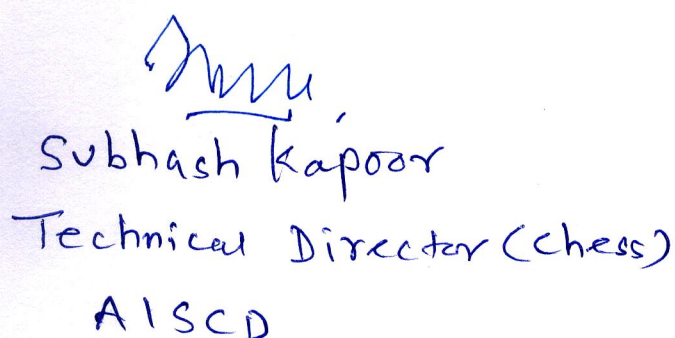 Subhash Kapoor
Technical Director (Chess)
AISCD